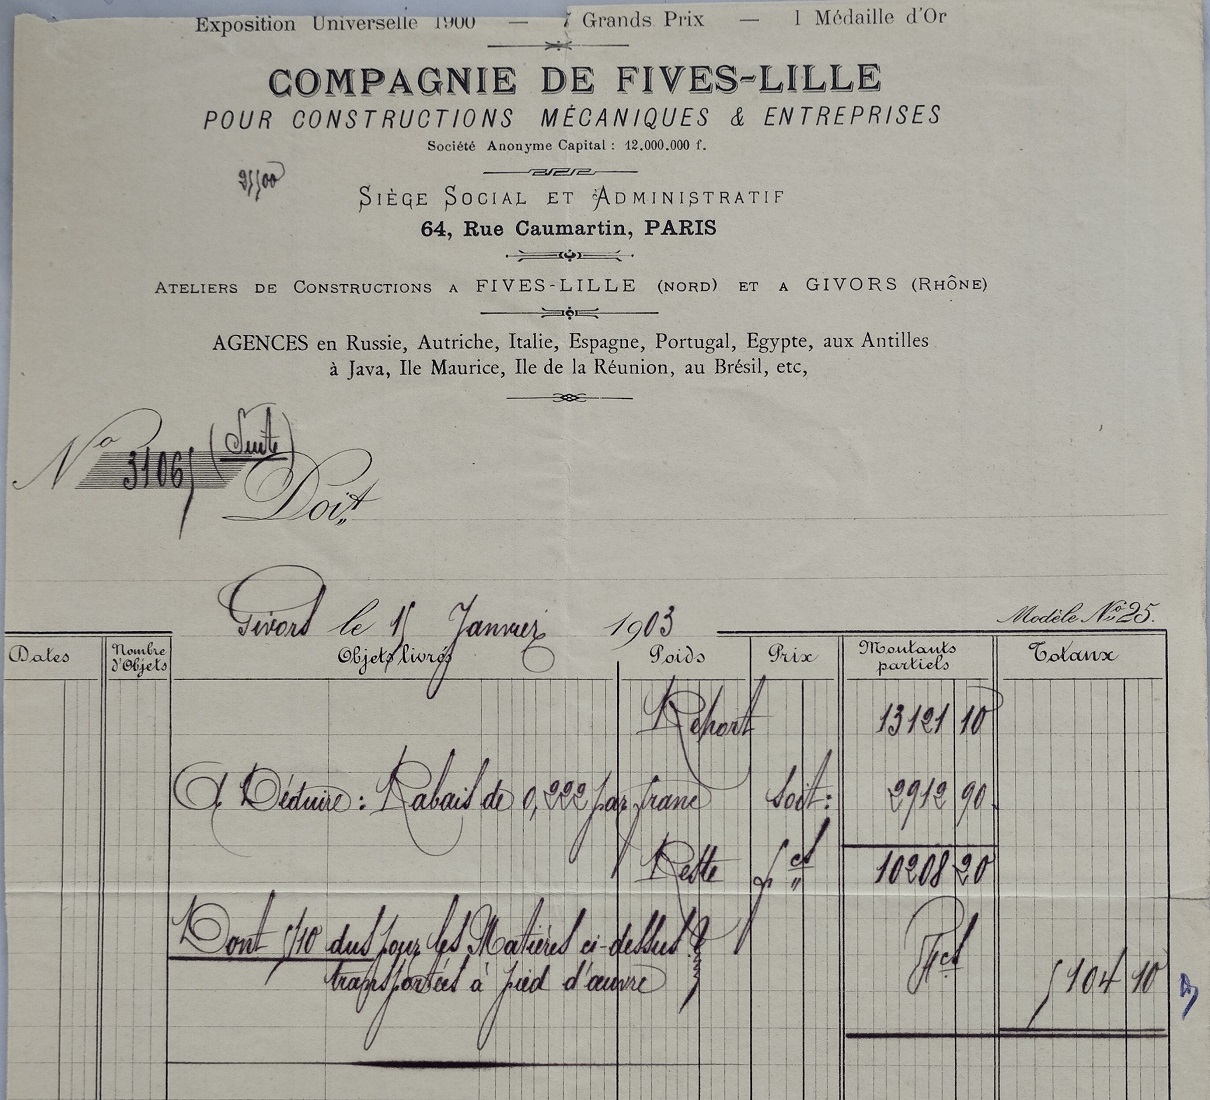 Exposition Universelle 1900 — 7 Grands Prix — 1 Médaille d'Or
COMPAGNIE DE FIVES-LILLE
POUR CONSTRUCTIONS MÉCANIQUES & ENTREPRISES
Société Anonyme Capital : 12.000.000 f.
SIÈGE SOCIAL ET ADMINISTRATIF
64, Rue Caumartin, PARIS
ATELIERS DE CONSTRUCTIONS A FIVES-LILLE (NORD) ET A GIVORS (RHÔNE)
AGENCES en Russie, Autriche, Italie, Espagne, Portugal, Egypte, aux Antilles
à Java, Ile Maurice, Ile de la Réunion, au Brésil, etc,
No 31065 (Suite)
Doit
Givors le 15 Janvier 1903
Modèle No 25.
Dates Nombre d'Objets Objets livrés Poids Prix Montants partiels Totaux
Report 13121 10
A Déduire : Rabais de 0,222 par franc soit : 2912 90
Reste fcs " 10208 20
Dont 5/10 dus pour les Matières ci-dessus
transportées à pied d'œuvre Fcs 5104 10